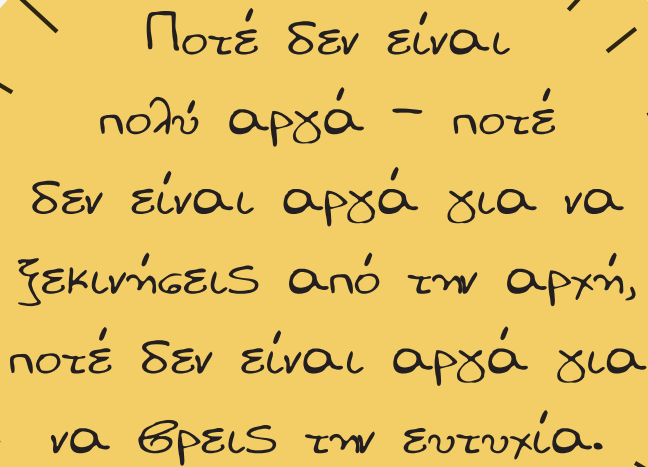 Ποτέ δεν είναι
πολύ αργά – ποτέ
δεν είναι αργά για να
ξεκινήσεις από την αρχή,
ποτέ δεν είναι αργά για
να βρεις την ευτυχία.